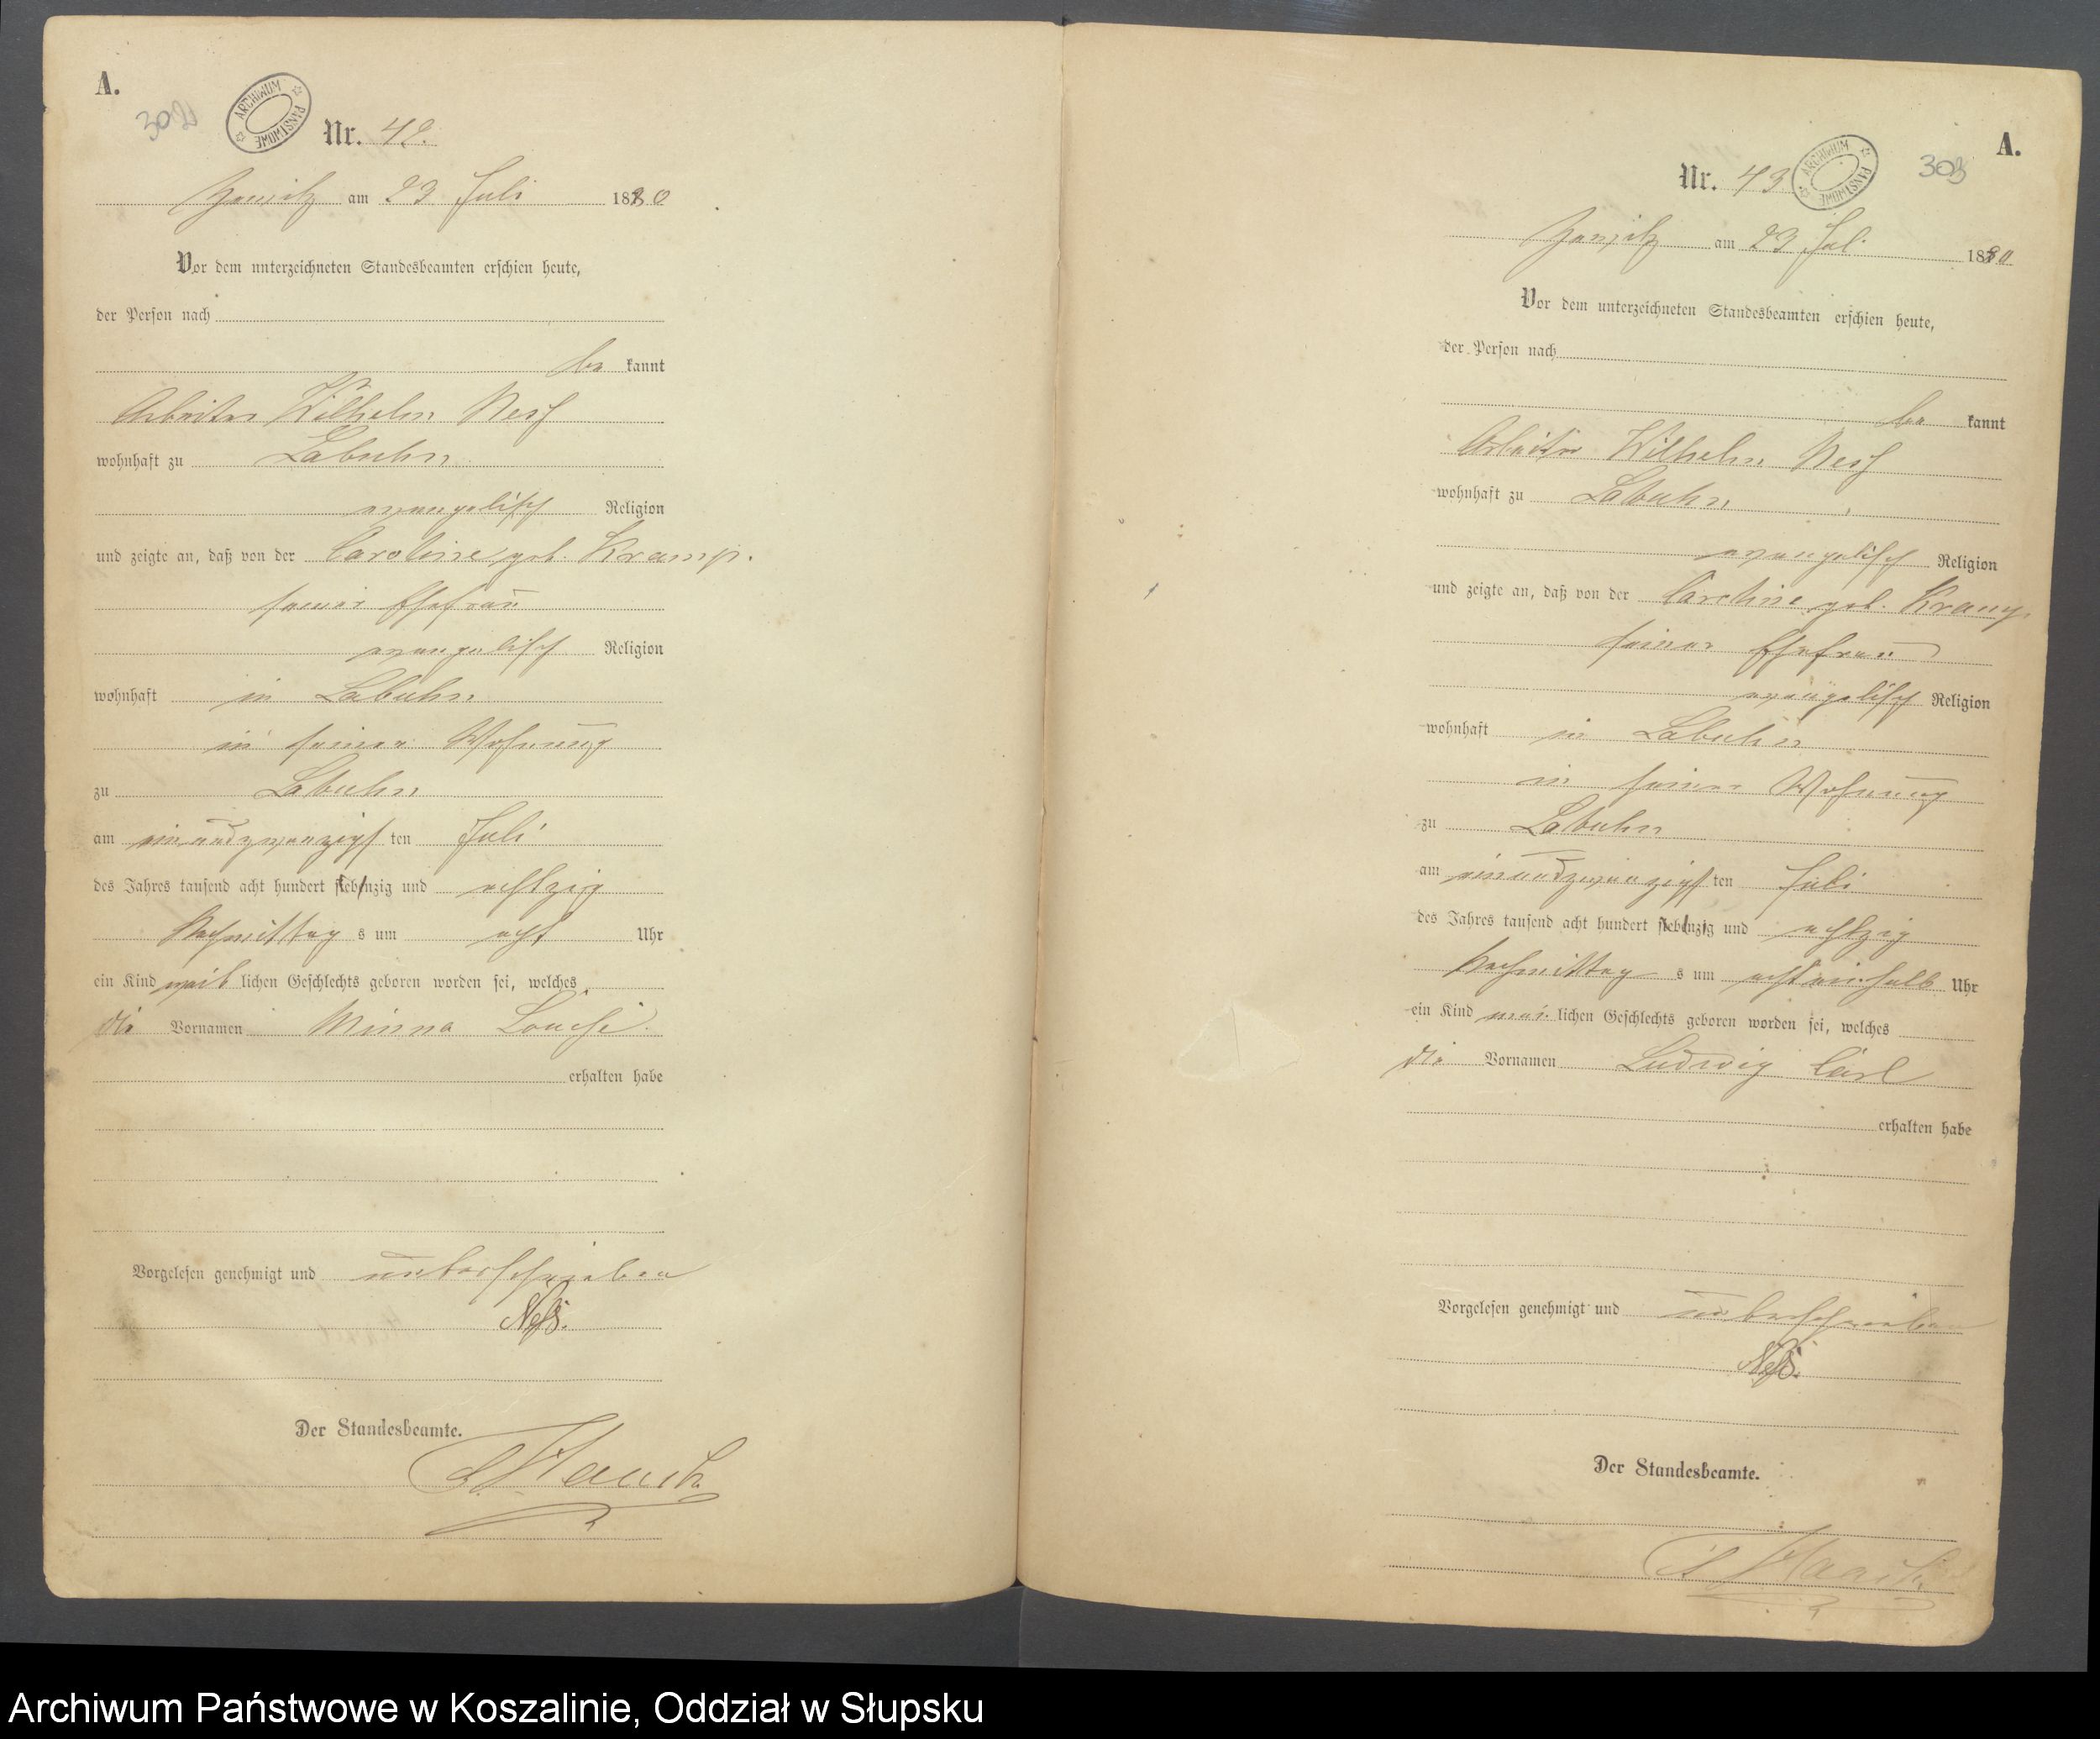 A.
302
ARCHIWUM PAŃSTWOWE
Nr. 42.
am 23 Juli 1880
Vor dem unterzeichneten Standesbeamten erschien heute,
der Person nach
be kannt
Arbeiter Wilhelm Ness
wohnhaft zu Labuhn
evangelisch Religion
und zeigte an, daß von der Caroline geb. Kramp.
seiner Ehefrau
evangelisch Religion
wohnhaft in Labuhn
in seiner Wohnung
zu Labuhn
am einundzwanzigsten Juli
des Jahres tausend acht hundert siebenzig und achtzig
Nachmittags um acht Uhr
ein Kind weiblichen Geschlechts geboren worden sei, welches
die Vornamen Minna Louise
erhalten habe
Vorgelesen genehmigt und unterschrieben
Neß.
Der Standesbeamte.
A.
303
ARCHIWUM PAŃSTWOWE
Nr. 43
am 23 Juli 1880
Vor dem unterzeichneten Standesbeamten erschien heute,
der Person nach
be kannt
Arbeiter Wilhelm Ness
wohnhaft zu Labuhn
evangelisch Religion
und zeigte an, daß von der Caroline geb. Kramp.
seiner Ehefrau
evangelisch Religion
wohnhaft in Labuhn
in seiner Wohnung
zu Labuhn
am einundzwanzigsten Juli
des Jahres tausend acht hundert siebenzig und achtzig
Nachmittags um achteinhalb Uhr
ein Kind lichen Geschlechts geboren worden sei, welches
die Vornamen Ludwig Carl
erhalten habe
Vorgelesen genehmigt und unterschrieben
Neß.
Der Standesbeamte.
Archiwum Państwowe w Koszalinie, Oddział w Słupsku